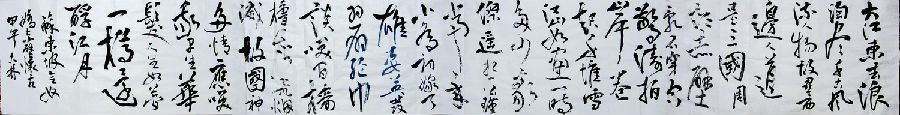 大江東去浪
淘盡千古風
流物故壘西
邊人道
是三國周
郎赤壁
亂石穿空
驚濤拍
岸卷
起千堆雪
江山如畫一時
多少豪
傑遙想公瑾
當年
小喬初嫁了
雄姿英發
羽扇綸巾
談笑間檣
櫓灰飛煙
滅故國神
多情應笑
我早生華
髮人生如夢
一樽還
酹江月
蘇東坡念奴
嬌赤壁懷古
甲午